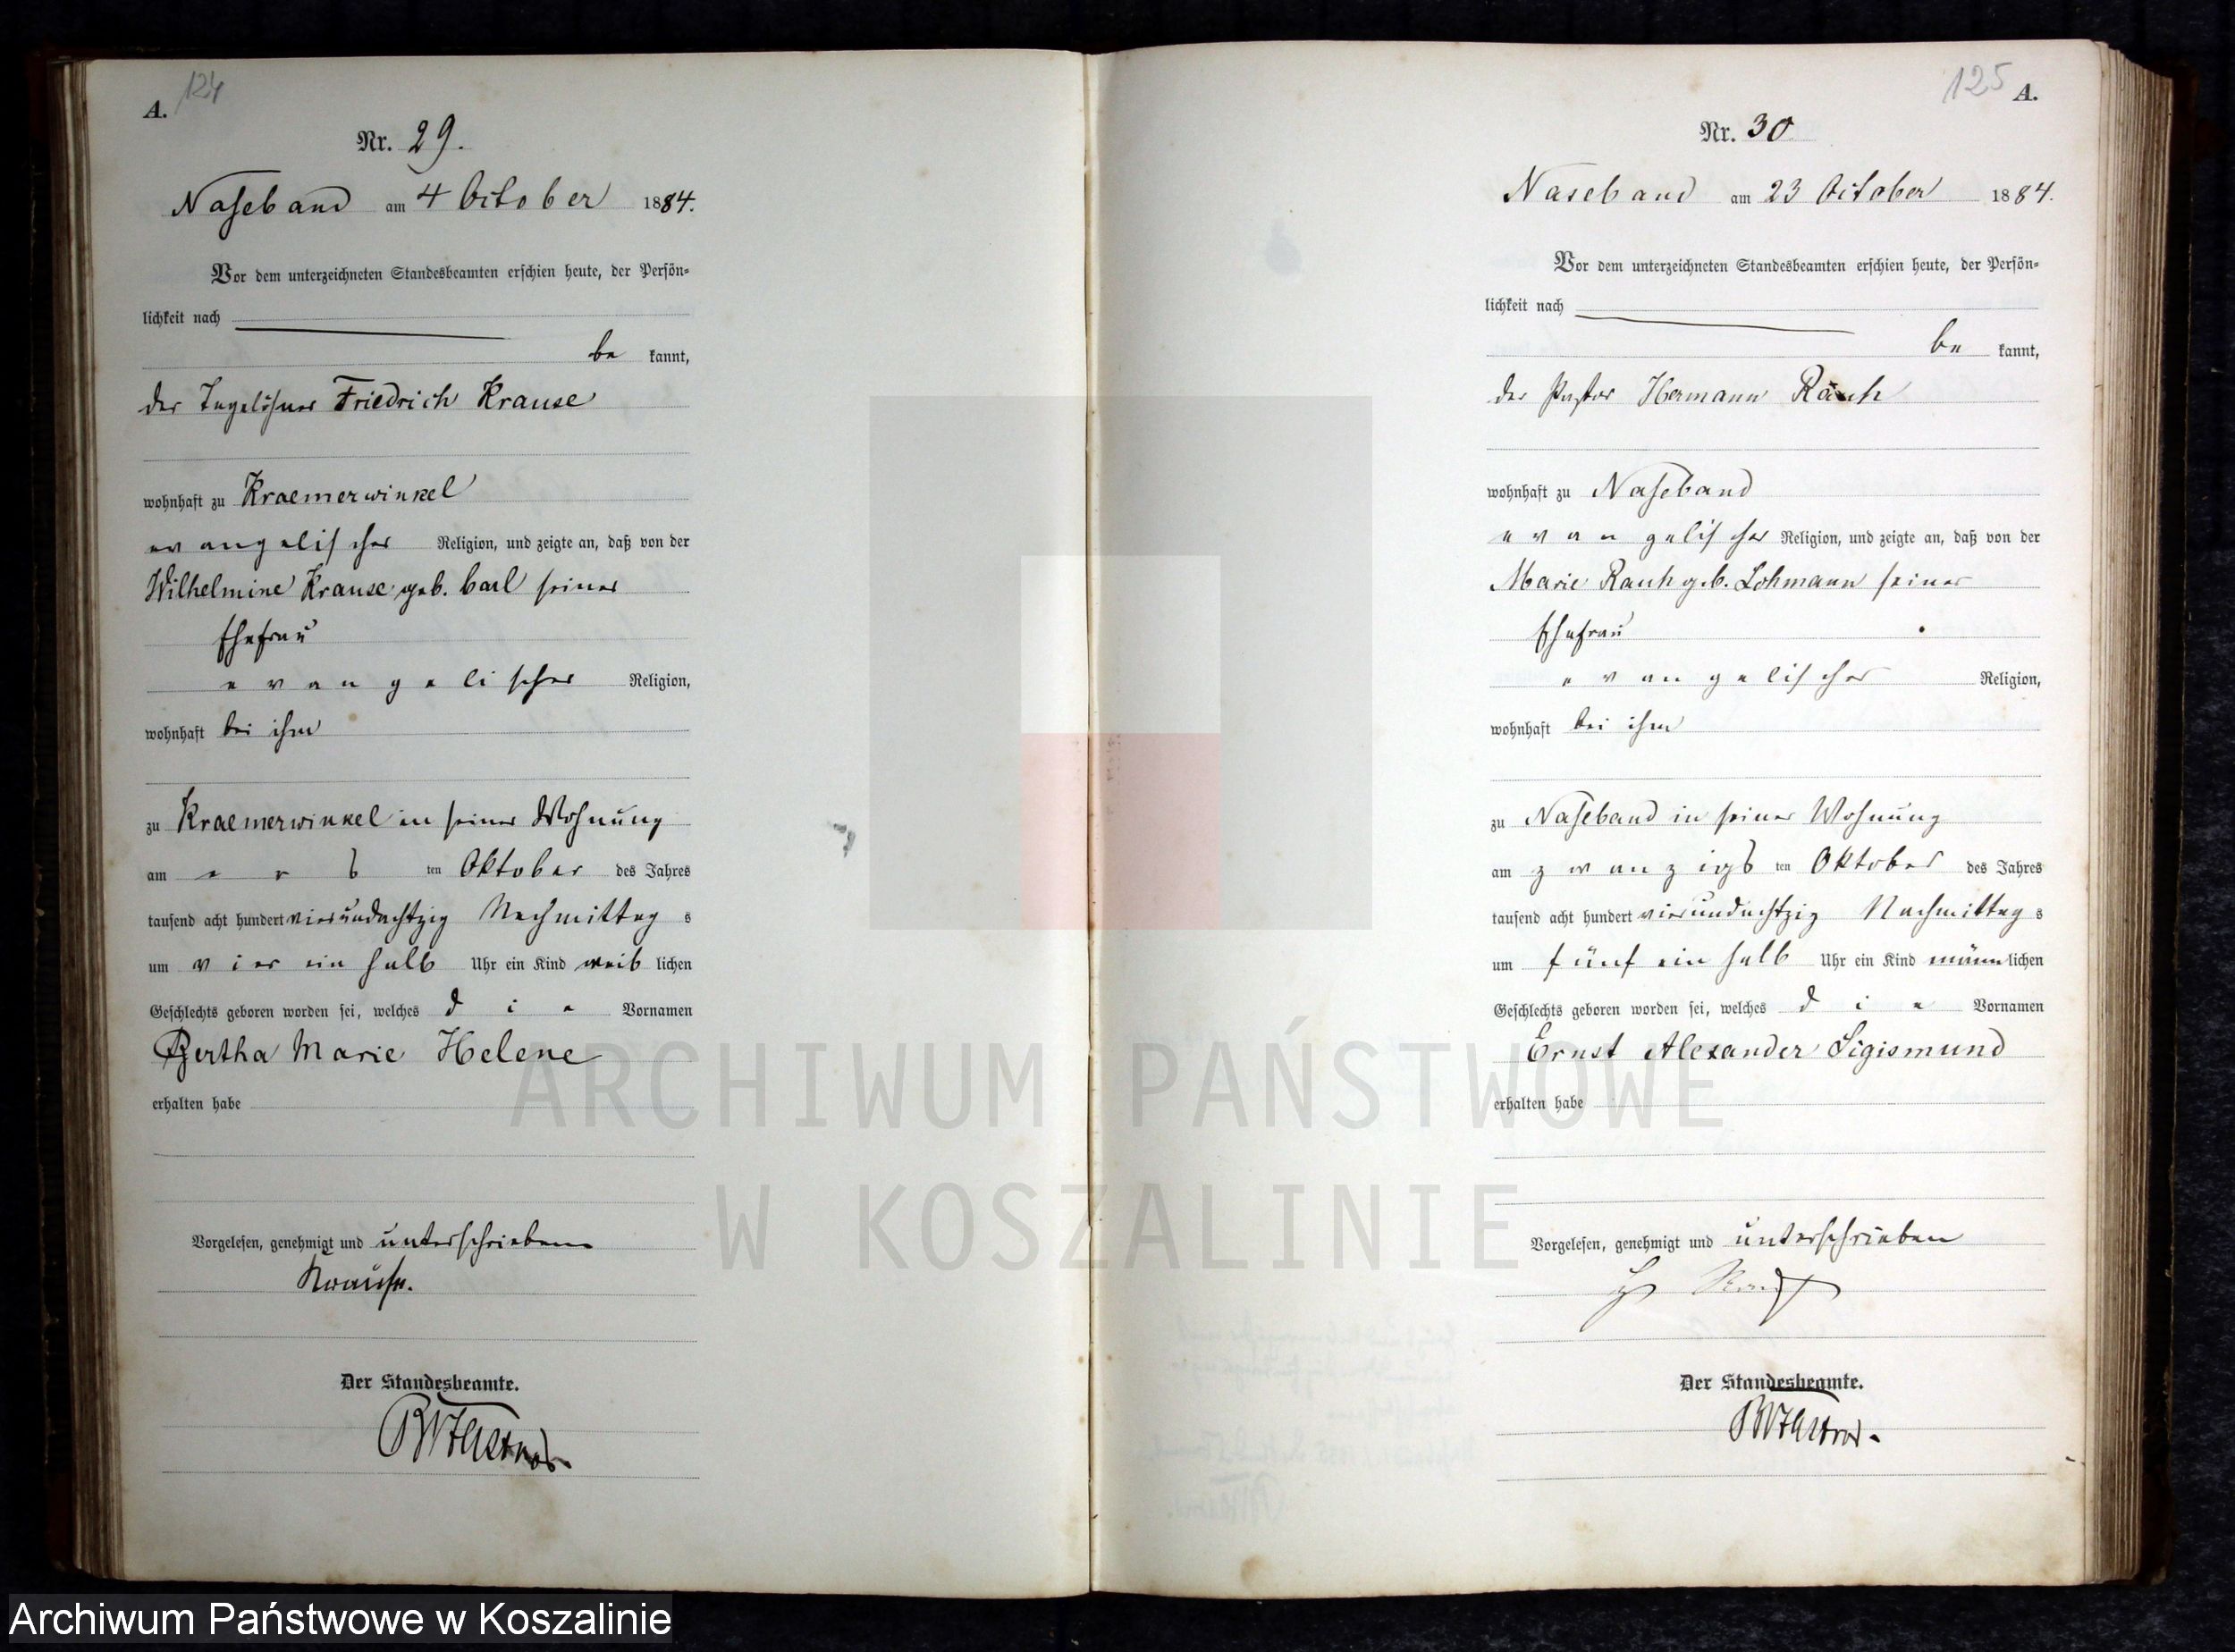 124
A.
Nr. 29.
Naseband am 4 October 1884.
Vor dem unterzeichneten Standesbeamten erschien heute, der Persön-
lichkeit nach
be kannt,
der Tagelöhner Friedrich Krause
wohnhaft zu Kraemerwinkel
evangelischer Religion, und zeigte an, daß von der
Wilhelmine Krause geb. Carl seiner
Ehefrau
evangelischer Religion,
wohnhaft bei ihm
zu Kraemerwinkel in seiner Wohnung
am ers ten Oktober des Jahres
tausend acht hundert vierundachtzig Nachmittag s
um vier ein halb Uhr ein Kind weib lichen
Geschlechts geboren worden sei, welches die Vornamen
Bertha Marie Helene
erhalten habe
Vorgelesen, genehmigt und unterschrieben
Krause.
Der Standesbeamte.
125
A.
Nr. 30
Naseband am 23 October 1884.
Vor dem unterzeichneten Standesbeamten erschien heute, der Persön-
lichkeit nach
be kannt,
der Pastor Hermann Rauh
wohnhaft zu Naseband
evangelischer Religion, und zeigte an, daß von der
Marie Rauh geb. Lohmann seiner
Ehefrau
evangelischer Religion,
wohnhaft bei ihm
zu Naseband in seiner Wohnung
am zwanzigs ten Oktober des Jahres
tausend acht hundert vierundachtzig Nachmittag s
um fünf ein halb Uhr ein Kind männ lichen
Geschlechts geboren worden sei, welches die Vornamen
Ernst Alexander Sigismund
erhalten habe
Vorgelesen, genehmigt und unterschrieben
Der Standesbeamte.
ARCHIWUM PAŃSTWOWE
W KOSZALINIE
Archiwum Państwowe w Koszalinie